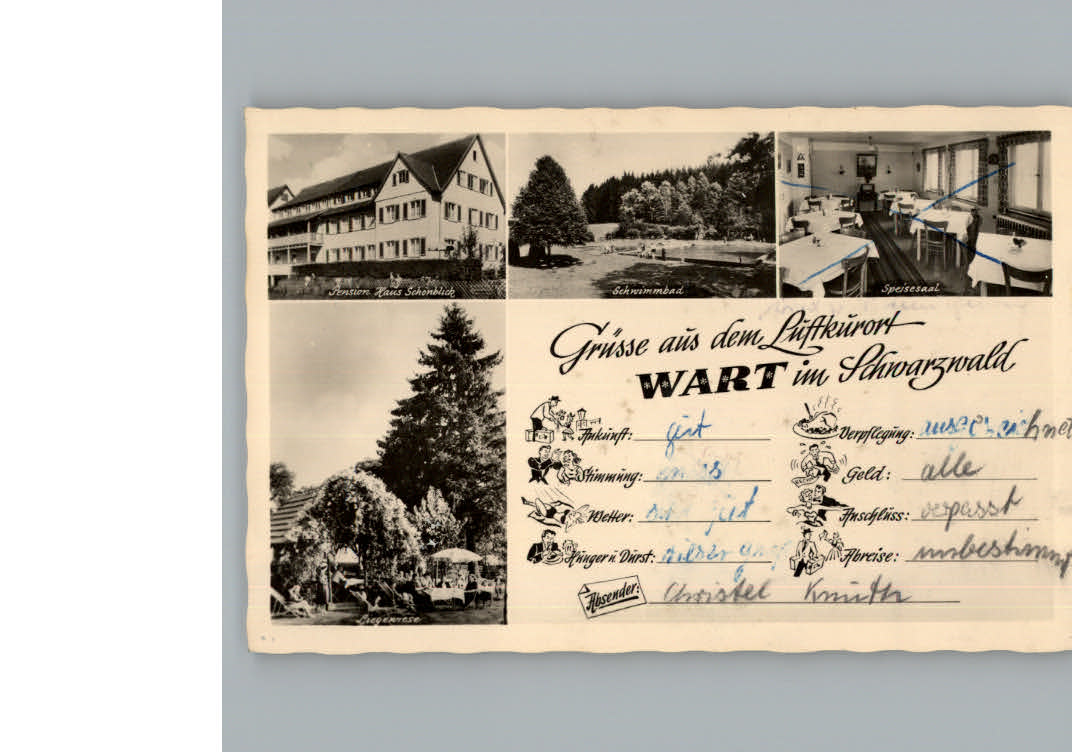 Pension Haus Schönblick
Schwimmbad
Speisesaal
Grüsse aus dem Luftkurort
WART im Schwarzwald
Ankunft: gut
Verpflegung: ausgezeichnet
Stimmung:
Geld: alle
Wetter: sehr gut
Anschluss: verpasst
Hunger u. Durst:
Abreise: unbestimmt
Absender: Christel Knuth
Liegewiese